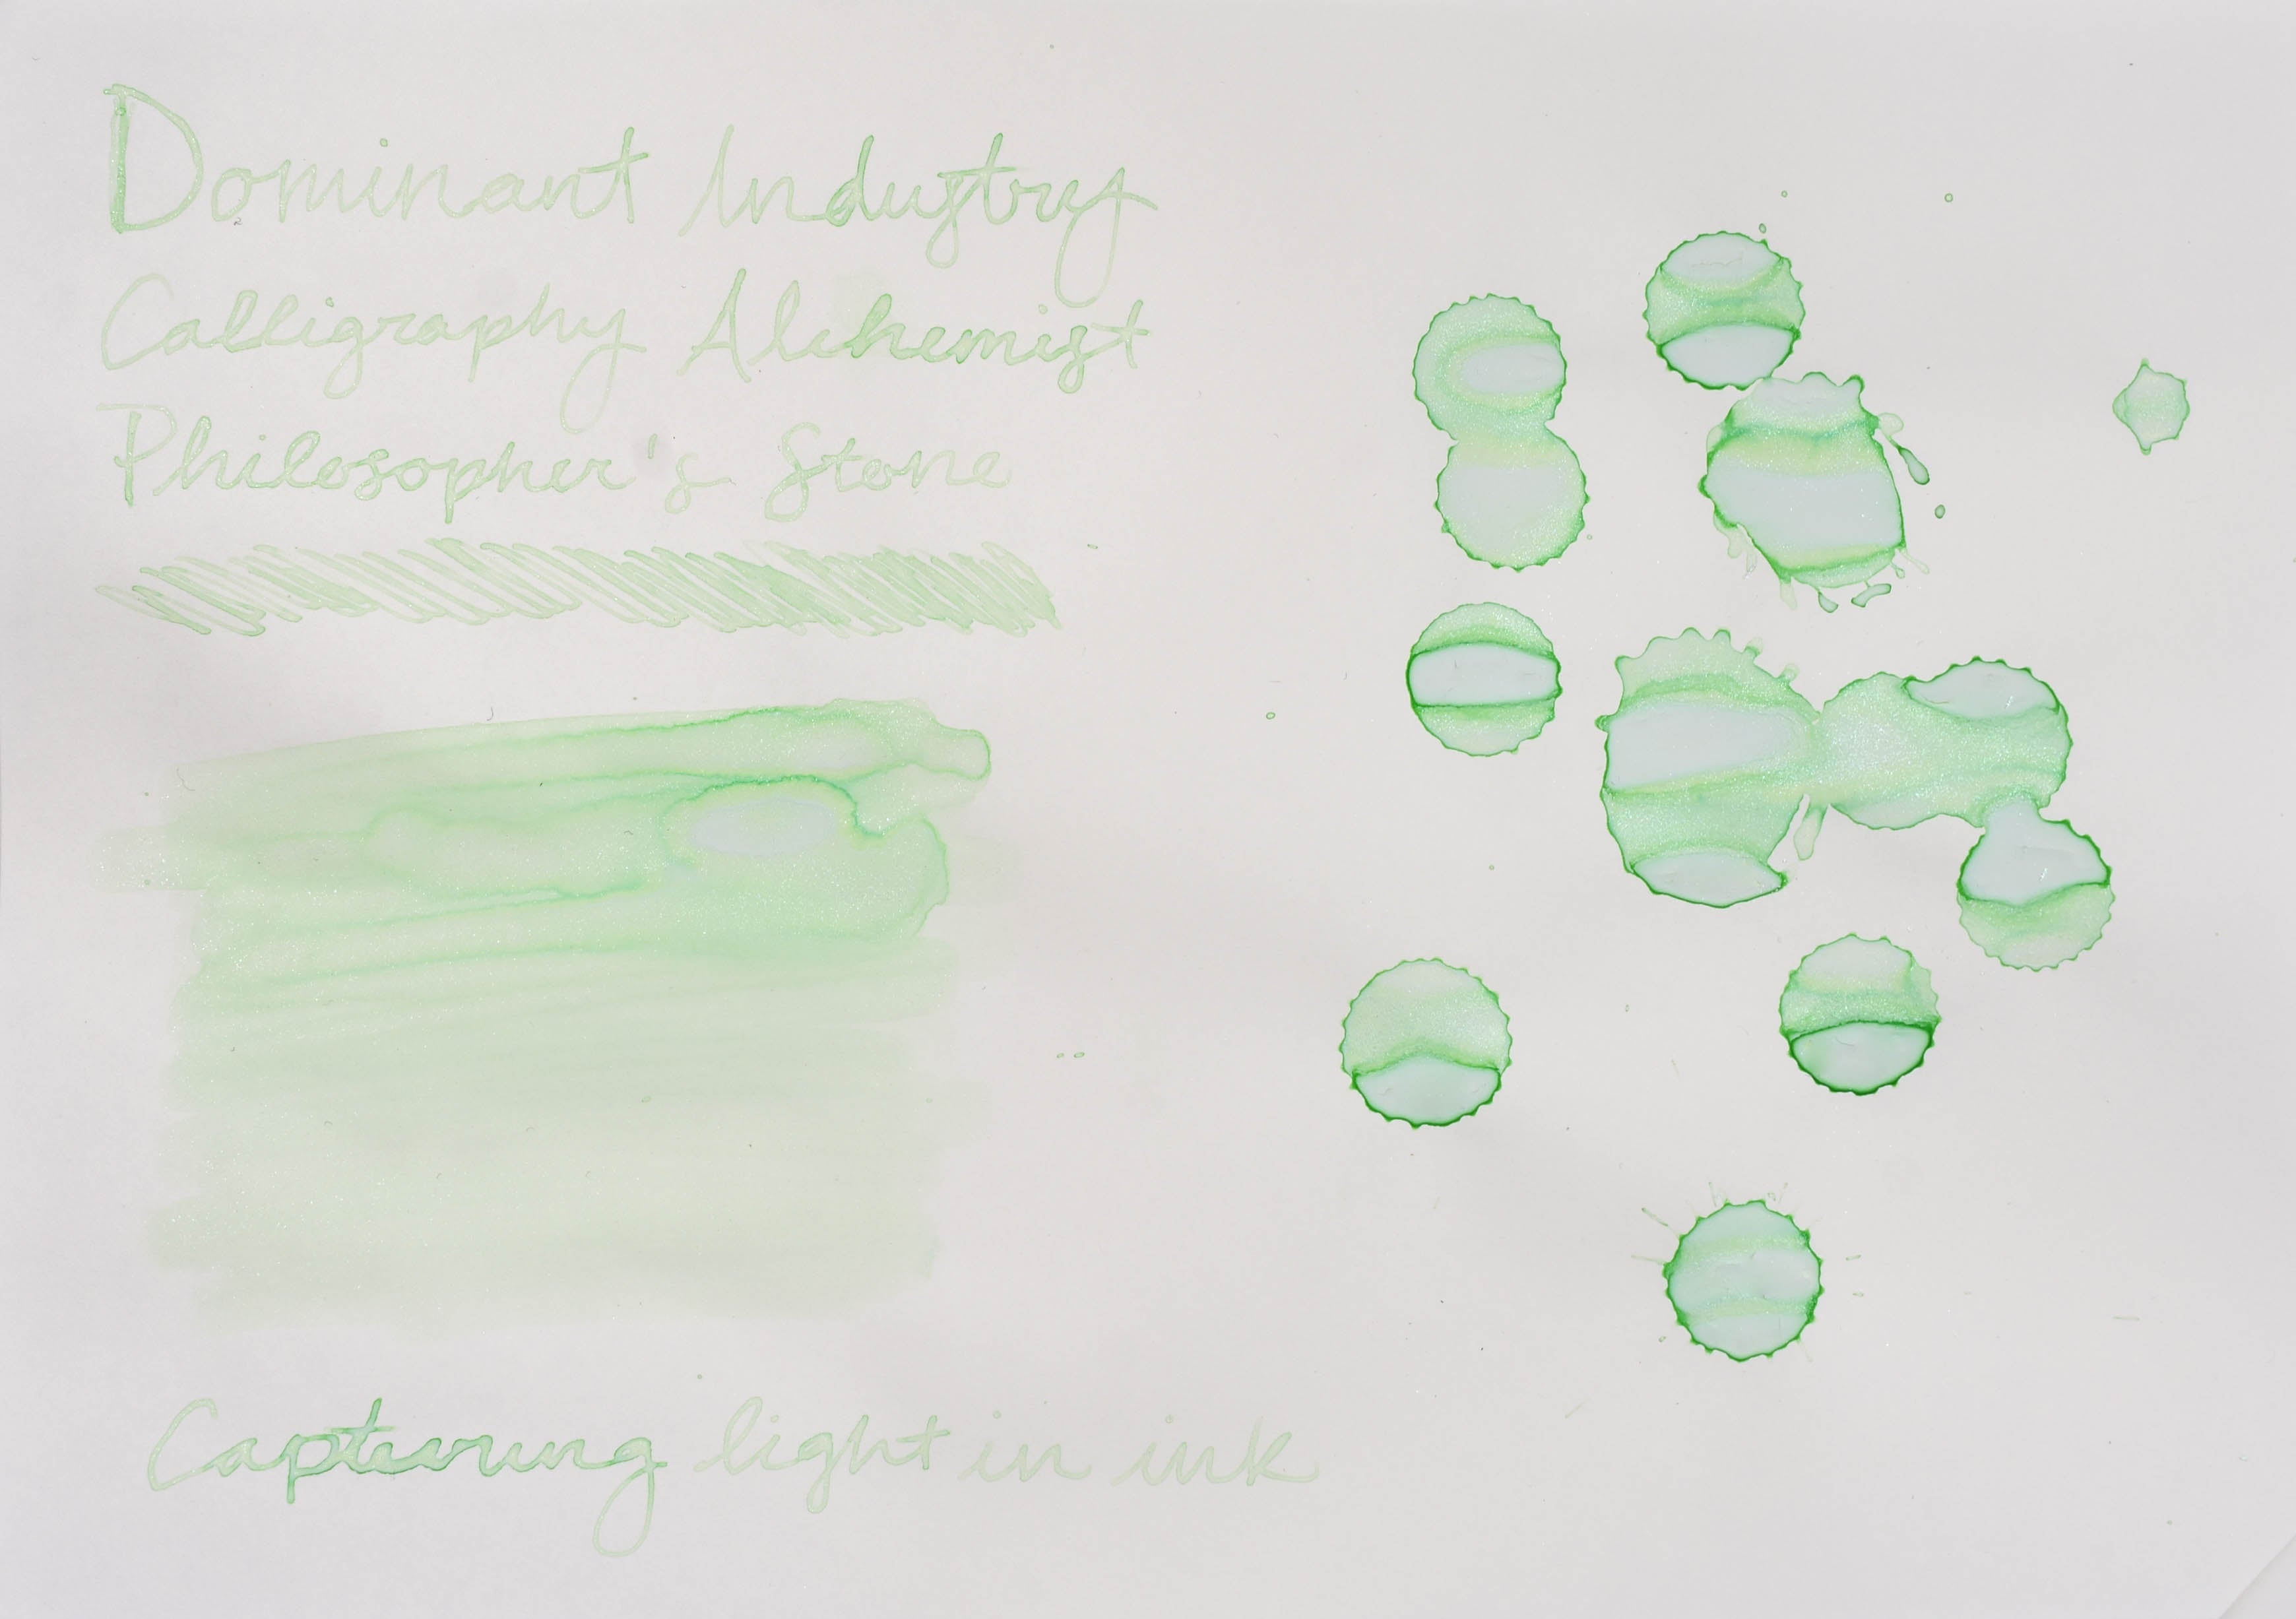 Dominant Industry
Calligraphy Alchemist
Philosopher's Stone
Capturing light in ink